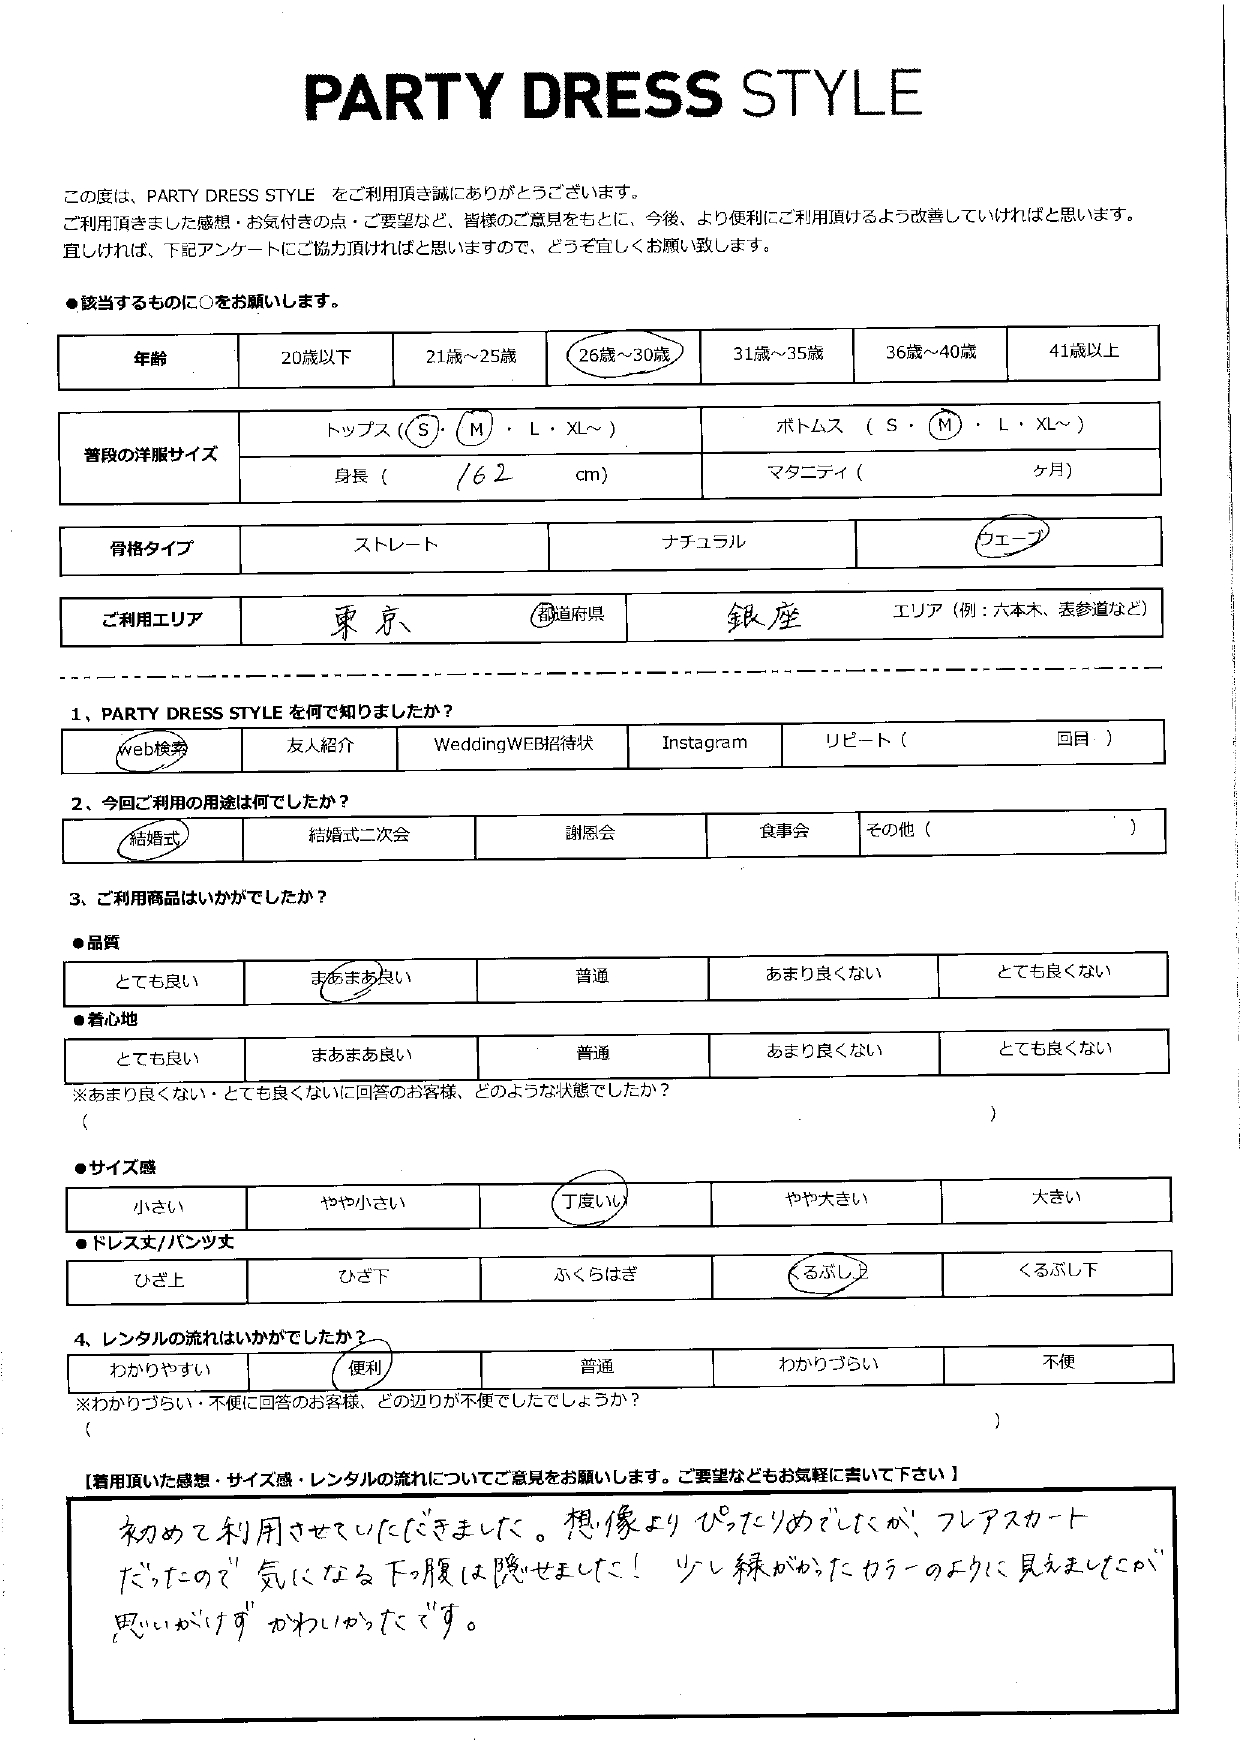 PARTY DRESS STYLE
この度は、PARTY DRESS STYLE をご利用頂き誠にありがとうございます。
ご利用頂きました感想・お気付きの点・ご要望など、皆様のご意見をもとに、今後、より便利にご利用頂けるよう改善していければと思います。
宜しければ、下記アンケートにご協力頂ければと思いますので、どうぞ宜しくお願い致します。
●該当するものに○をお願いします。
年齢 20歳以下 21歳～25歳 26歳～30歳 31歳～35歳 36歳～40歳 41歳以上
普段の洋服サイズ
トップス (S・M・L・XL～) ボトムス (S・M・L・XL～)
身長 ( 162 cm) マタニティ ( ヶ月)
骨格タイプ ストレート ナチュラル ウェーブ
ご利用エリア 東京 都道府県 銀座 エリア（例：六本木、表参道など）
1、PARTY DRESS STYLE を何で知りましたか？
web検索 友人紹介 WeddingWEB招待状 Instagram リピート ( 回目 )
2、今回ご利用の用途は何でしたか？
結婚式 結婚式二次会 謝恩会 食事会 その他 ( )
3、ご利用商品はいかがでしたか？
●品質
とても良い まあまあ良い 普通 あまり良くない とても良くない
●着心地
とても良い まあまあ良い 普通 あまり良くない とても良くない
※あまり良くない・とても良くないに回答のお客様、どのような状態でしたか？
( )
●サイズ感
小さい やや小さい 丁度いい やや大きい 大きい
●ドレス丈/パンツ丈
ひざ上 ひざ下 ふくらはぎ くるぶし上 くるぶし下
4、レンタルの流れはいかがでしたか？
わかりやすい 便利 普通 わかりづらい 不便
※わかりづらい・不便に回答のお客様、どの辺りが不便でしたでしょうか？
( )
【着用頂いた感想・サイズ感・レンタルの流れについてご意見をお願いします。ご要望などもお気軽に書いて下さい】
初めて利用させていただきました。想像よりぴったりめでしたが、フレアスカート
だったので気になる下っ腹は隠せました！ 少し緑がかったカラーのように見えましたが
思いがけずかわいかったです。